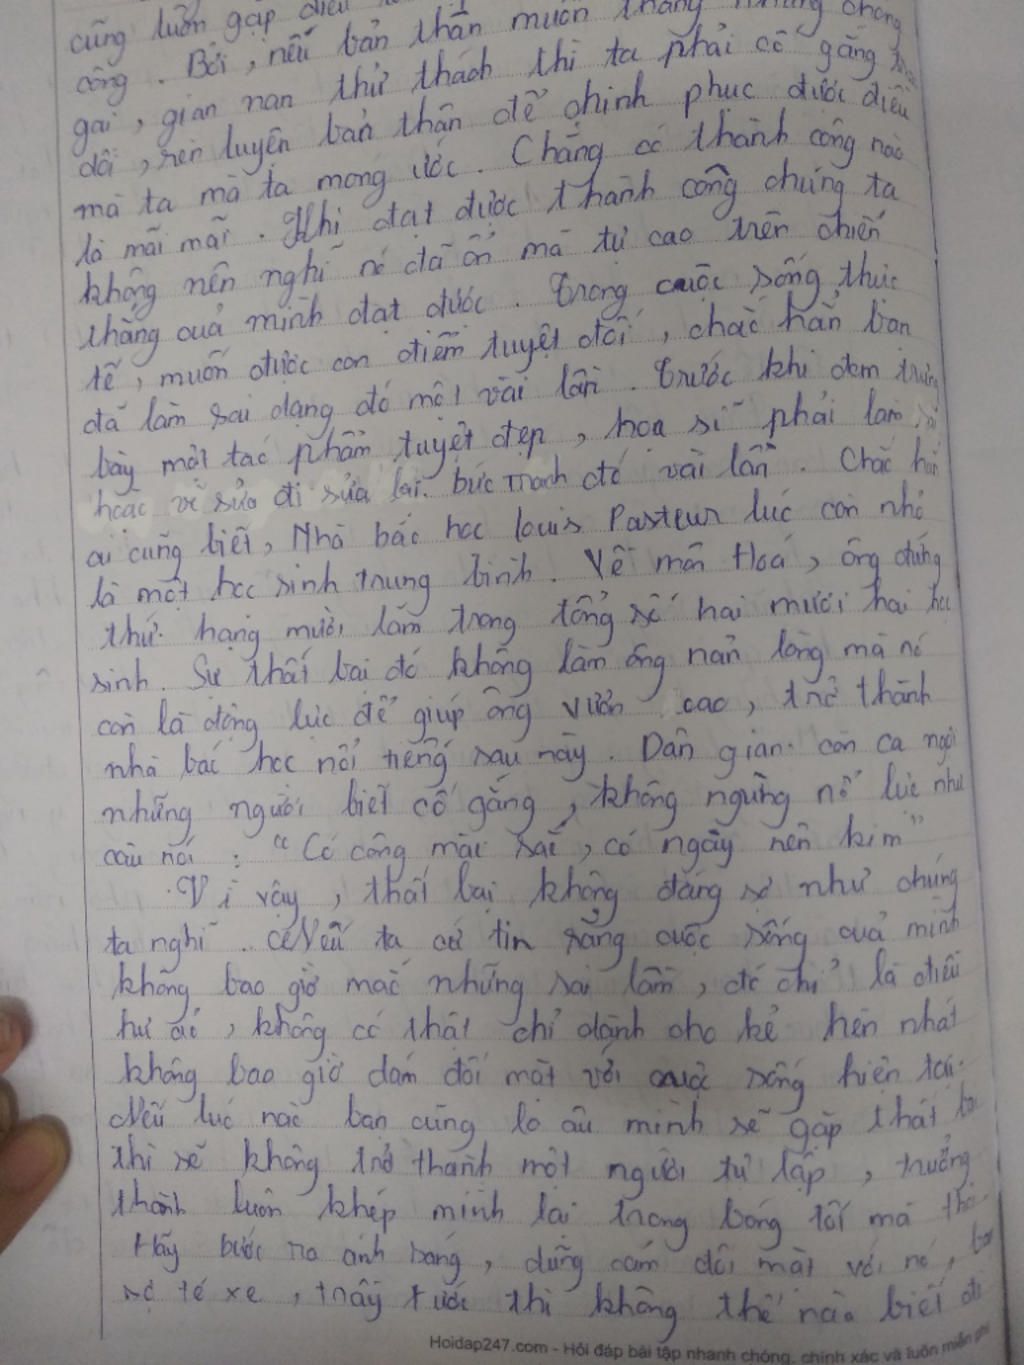 cũng luôn gặp điều
công. Bởi, nếu bản thân muốn thắng những chông
gai, gian nan thử thách thì ta phải cố gắng
dồi, rèn luyện bản thân để chinh phục được điều
mà ta mà ta mong ước. Chẳng có thành công nào
là mãi mãi. Khi đạt được thành công chúng ta
không nên nghĩ nó đã ổn mà tự cao trên chiến
thắng của mình đạt được. Trong cuộc sống thực
tế, muốn được con điểm tuyệt đối, chắc hẳn bạn
đã làm sai dạng đó một vài lần. Trước khi đem trưng
bày một tác phẩm tuyệt đẹp, họa sĩ phải làm
hoặc vẽ sửa đi sửa lại bức tranh đó vài lần. Chắc hẳn
ai cũng biết, Nhà bác học Louis Pasteur lúc còn nhỏ
là một học sinh trung bình. Về môn Hoá, ông đứng
thứ hạng mười lăm trong tổng số hai mươi hai học
sinh. Sự thất bại đó không làm ông nản lòng mà nó
còn là động lực để giúp ông vươn cao, trở thành
nhà bác học nổi tiếng sau này. Dân gian còn ca ngợi
những người biết cố gắng, không ngừng nỗ lực như
câu nói: "Có công mài sắt, có ngày nên kim"
Vì vậy, thất bại không đáng sợ như chúng
ta nghĩ. Nếu ta cứ tin rằng cuộc sống của mình
không bao giờ mắc những sai lầm, đó chỉ là điều
hư ảo, không có thật chỉ dành cho kẻ hèn nhát
không bao giờ dám đối mặt với cuộc sống hiện tại.
Nếu lúc nào bạn cũng lo âu mình sẽ gặp thất bại
thì sẽ không trở thành một người tự lập, trưởng
thành luôn khép mình lại trong bóng tối mà thôi.
Hãy bước ra ánh sáng, dũng cảm đối mặt với nó,
sợ té xe, trầy xước thì không thể nào biết đi
Hoidap247.com - Hỏi đáp bài tập nhanh chóng, chính xác và luôn miễn phí